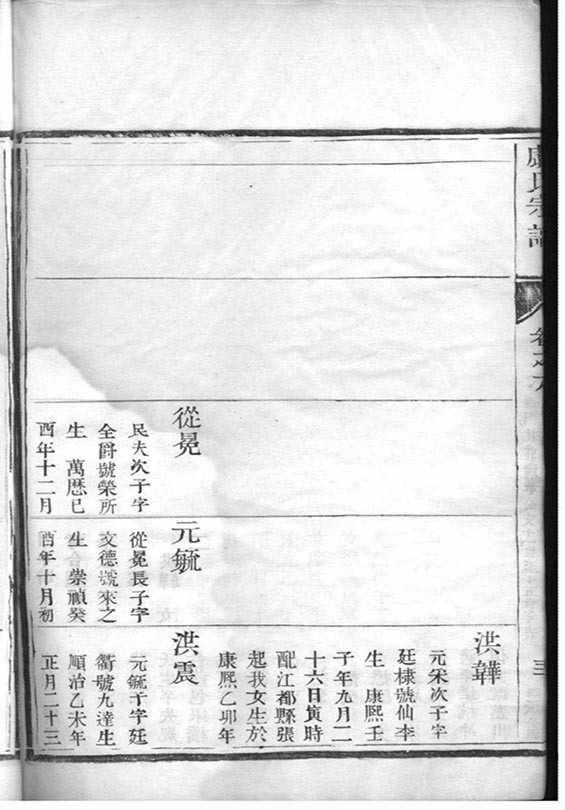 氏宗譜
卷之六
三
從晃
民夫次子字
全爵號榮所
生 萬歷已
酉年十二月
元毓
從晃長子字
文德號來之
生 崇禎癸
酉年十月初
洪韡
元宋次子字
廷棣號仙李
生 康熙壬
子年九月二
十六日寅時
配江都縣張
起我女生於
康熙乙卯年
洪震
元毓子字廷
衢號九達生
順治乙未年
正月二十三